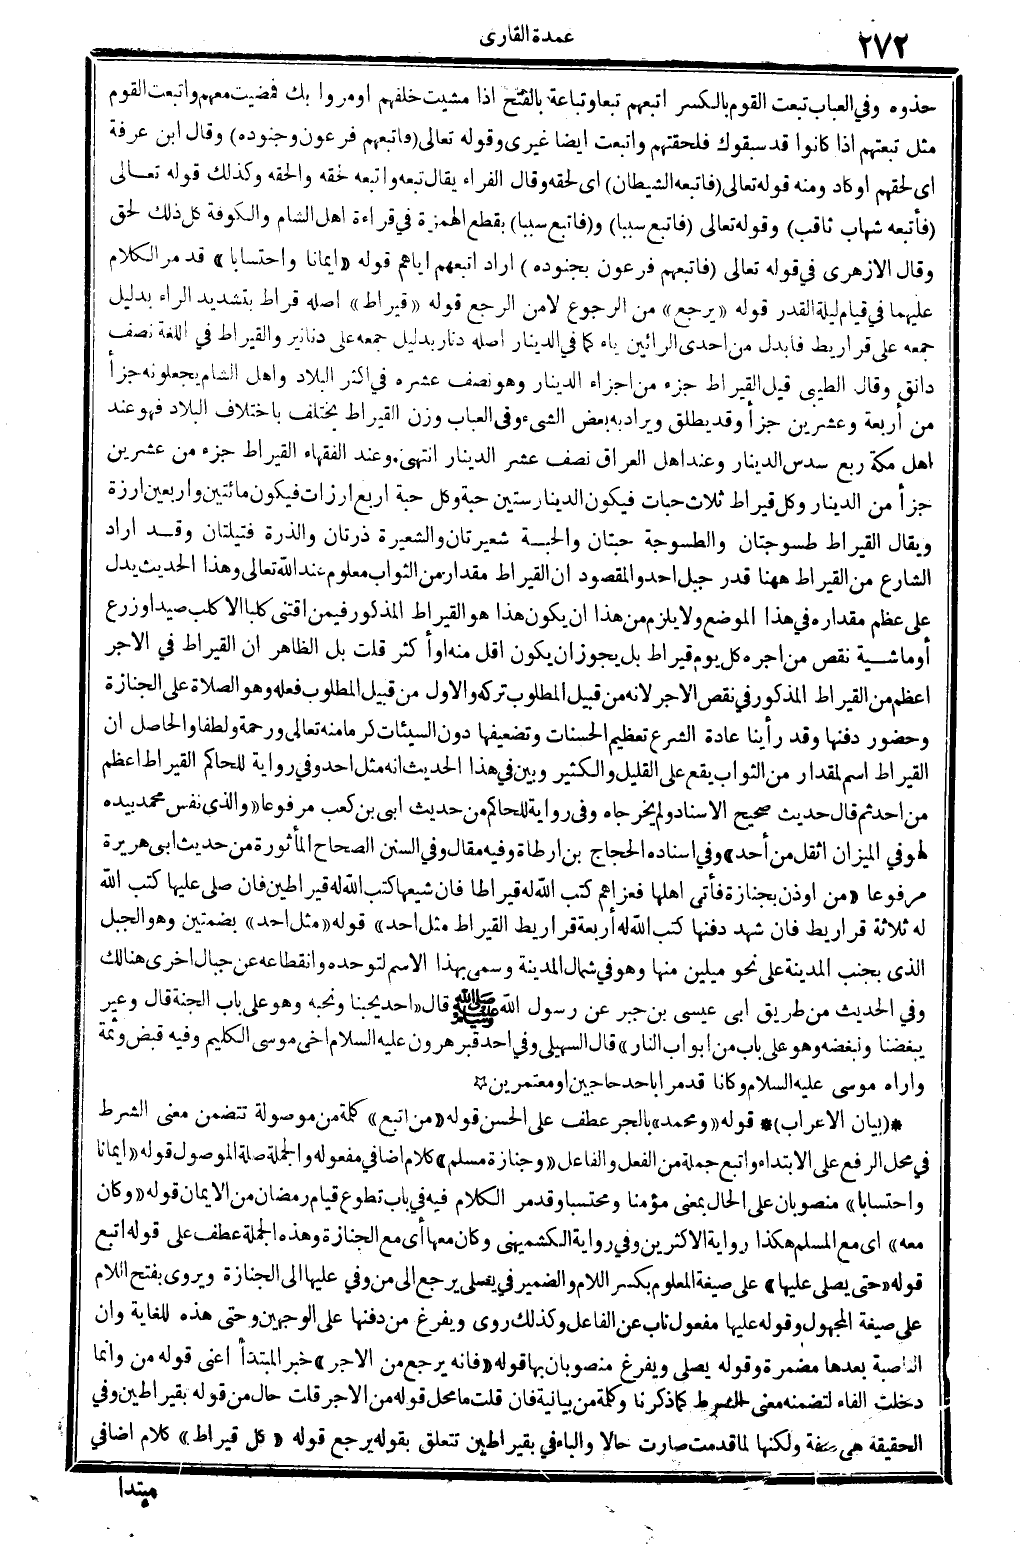 ٢٧٢
عمدة القارى
حذوه وفي العباب تبعت القوم بالكسر اتبعهم تبعا وتباعة بالفتح اذا مشيت خلفهم او مروا بك فمضيت معهم واتبعت القوم
مثل تبعتهم اذا كانوا قد سبقوك فلحقتهم واتبعت ايضا غيرى وقوله تعالى (فاتبعهم فرعون وجنوده) وقال ابن عرفة
اى لحقهم او كاد ومنه قوله تعالى (فاتبعه الشيطان) اى لحقه وقال الفراء يقال تبعه واتبعه لحقه والحقه وكذلك قوله تعالى
(فأتبعه شهاب ثاقب) وقوله تعالى (فاتبع سببا) و(فاتبع سببا) بقطع الهمزة في قراءة اهل الشام والكوفة كل ذلك لحق
وقال الازهرى في قوله تعالى (فاتبعهم فرعون بجنوده) اراد اتبعهم اياهم قوله «ايمانا واحتسابا» قد مر الكلام
عليهما في قيام ليلة القدر قوله «يرجع» من الرجوع لا من الرجع قوله «قيراط» اصله قراط بتشديد الراء بدليل
جمعه على قراريط فابدل من احدى الرائين ياء كما في الدينار اصله دنار بدليل جمعه على دنانير والقيراط في اللغة نصف
دانق وقال الطيبى قيل القيراط جزء من اجزاء الدينار وهو نصف عشره في اكثر البلاد واهل الشام يجعلونه جزأ
من أربعة وعشرين جزأ وقد يطلق ويراد به بعض الشىء وفي العباب وزن القيراط يختلف باختلاف البلاد فهو عند
اهل مكة ربع سدس الدينار وعند اهل العراق نصف عشر الدينار انتهى. وعند الفقهاء القيراط جزء من عشرين
جزأ من الدينار وكل قيراط ثلاث حبات فيكون الدينار ستين حبة وكل حبة اربع ارزات فيكون مائتين واربعين ارزة
ويقال القيراط طسوجتان والطسوجة حبتان والحبة شعيرتان والشعيرة ذرتان والذرة فتيلتان وقد اراد
الشارع من القيراط ههنا قدر جبل احد والمقصود ان القيراط مقدار من الثواب معلوم عند الله تعالى وهذا الحديث يدل
على عظم مقداره في هذا الموضع ولا يلزم من هذا ان يكون هذا هو القيراط المذكور فيمن اقتنى كلبا الا كلب صيد او زرع
أو ماشية نقص من اجره كل يوم قيراط بل يجوز ان يكون اقل منه او أكثر قلت بل الظاهر ان القيراط في الاجر
اعظم من القيراط المذكور في نقص الاجر لانه من قبيل المطلوب تركه والاول من قبيل المطلوب فعله وهو الصلاة على الجنازة
وحضور دفنها وقد رأينا عادة الشرع تعظيم الحسنات وتضعيفها دون السيئات كرما منه تعالى ورحمة ولطفا والحاصل ان
القيراط اسم لمقدار من الثواب يقع على القليل والكثير وبين في هذا الحديث انه مثل احد وفي رواية للحاكم القيراط اعظم
من احد ثم قال حديث صحيح الاسناد ولم يخرجاه وفى رواية للحاكم من حديث ابى بن كعب مرفوعا «والذى نفس محمد بيده
لهو في الميزان اثقل من أحد» وفي اسناده الحجاج بن ارطاة وفيه مقال وفي السنن الصحاح المأثورة من حديث ابى هريرة
مرفوعا «من اوذن بجنازة فأتى اهلها فعزاهم كتب الله له قيراطا فان شيعها كتب الله له قيراطين فان صلى عليها كتب الله
له ثلاثة قراريط فان شهد دفنها كتب الله له أربعة قراريط القيراط مثل احد» قوله «مثل احد» بضمتين وهو الجبل
الذى بجنب المدينة على نحو ميلين منها وهو في شمال المدينة وسمى بهذا الاسم لتوحده وانقطاعه عن جبال اخرى هنالك
وفي الحديث من طريق ابى عيسى بن جبر عن رسول الله ﷺ قال «احد يحبنا ونحبه وهو على باب الجنة قال وعير
يبغضنا ونبغضه وهو على باب من ابواب النار» قال السهيلى وفي احد قبر هرون عليه السلام اخى موسى الكليم وفيه قبض وثمة
واراه موسى عليه السلام وكانا قد مرا باحد حاجين او معتمرين ☆
*(بيان الاعراب)* قوله «ومحمد» بالجر عطف على الحسن قوله «من اتبع» كلمة من موصولة تتضمن معنى الشرط
في محل الرفع على الابتداء واتبع جملة من الفعل والفاعل «وجنازة مسلم» كلام اضافي مفعوله والجملة صلة الموصول قوله «ايمانا
واحتسابا» منصوبان على الحال بمعنى مؤمنا ومحتسبا وقد مر الكلام فيه في باب تطوع قيام رمضان من الايمان قوله «وكان
معه» اى مع المسلم هكذا رواية الاكثرين وفي رواية الكشميهنى وكان معها أى مع الجنازة وهذه الجملة عطف على قوله اتبع
قوله «حتى يصلى عليها» على صيغة المعلوم بكسر اللام والضمير في يصلى يرجع الى من وفي عليها الى الجنازة ويروى بفتح اللام
على صيغة المجهول وقوله عليها مفعول ناب عن الفاعل وكذلك روى ويفرغ من دفنها على الوجهين وحتى هذه للغاية وان
الناصبة بعدها مضمرة وقوله يصلى ويفرغ منصوبان بها قوله «فانه يرجع من الاجر» خبر المبتدأ أعنى قوله من وانما
دخلت الفاء لتضمنه معنى الشرط كما ذكرنا وكلمة من بيانية فان قلت ما محل قوله من الاجر قلت حال من قوله بقيراطين وفي
الحقيقة هى صفة ولكنها لما قدمت صارت حالا والباء في بقيراطين تتعلق بقوله يرجع قوله «كل قيراط» كلام اضافي
مبتدا